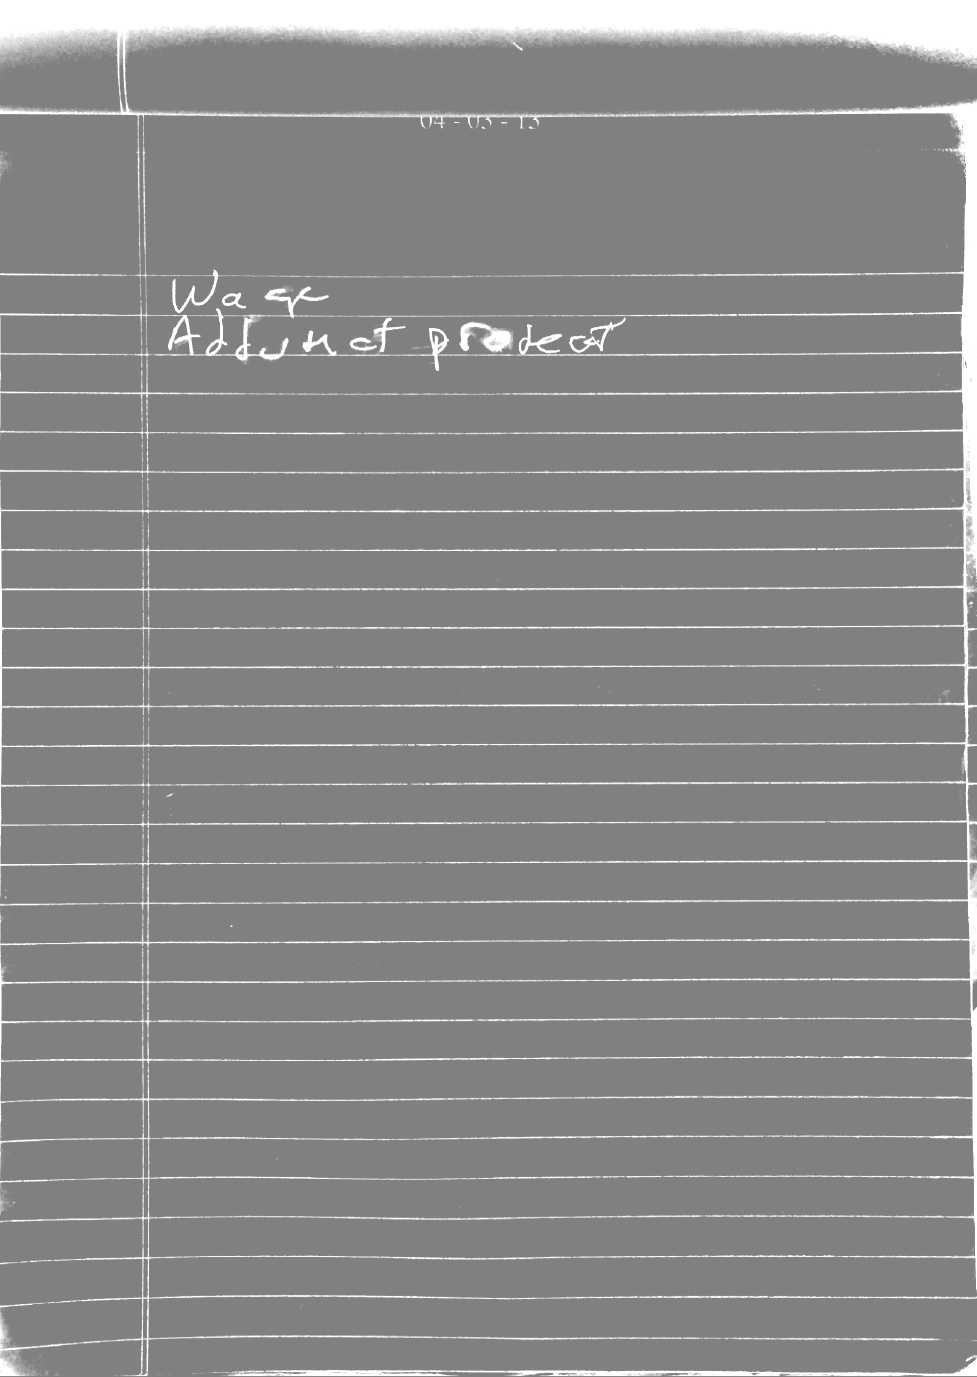 04 - 03 - 13
Wage
Adjunct product